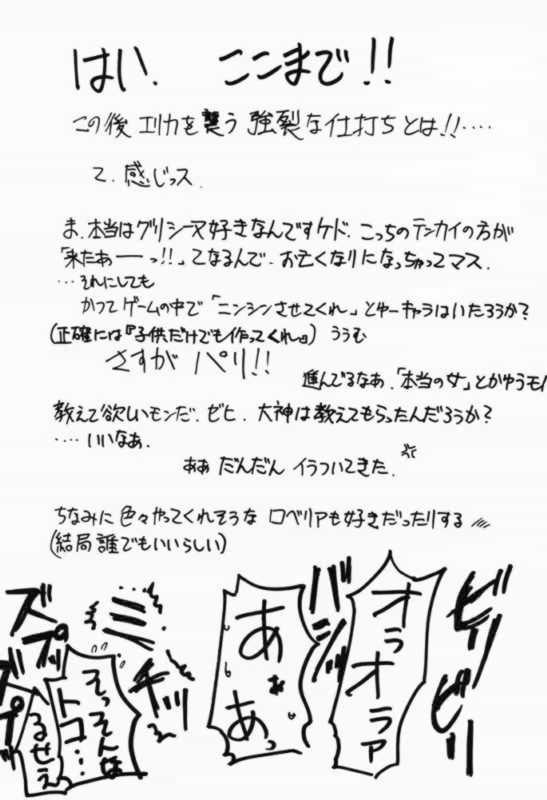 はい、ここまで!!
この後エリカを襲う強烈な仕打ちとは!!‥‥
て、感じっス、
ま、本当はグリシーヌ好きなんですケド、こっちのテンカイの方が
「来たあーーっ!!」てなるんで、お亡くなりになっちゃってマス、
…それにしても
かつてゲームの中で「ニンシンさせてくれ」とゆーキャラはいたろうか?
(正確には『子供だけでも作ってくれ』) ううむ
さすが パリ!!
進んでるなあ、「本当の女」とかゆうモノ
教えて欲しいモンだ、ゼヒ、大神は教えてもらったんだろうか?
‥‥いいなあ、
ああ だんだん イラついてきた、
ちなみに色々やってくれそうな ロベリアも好きだったりする
(結局誰でもいいらしい)
ビリ
ビリ
オラオラァ
バシ
あぁあっ
ミチッ
そっそんなトコ…
るせえ
ズプッ
ズプッ